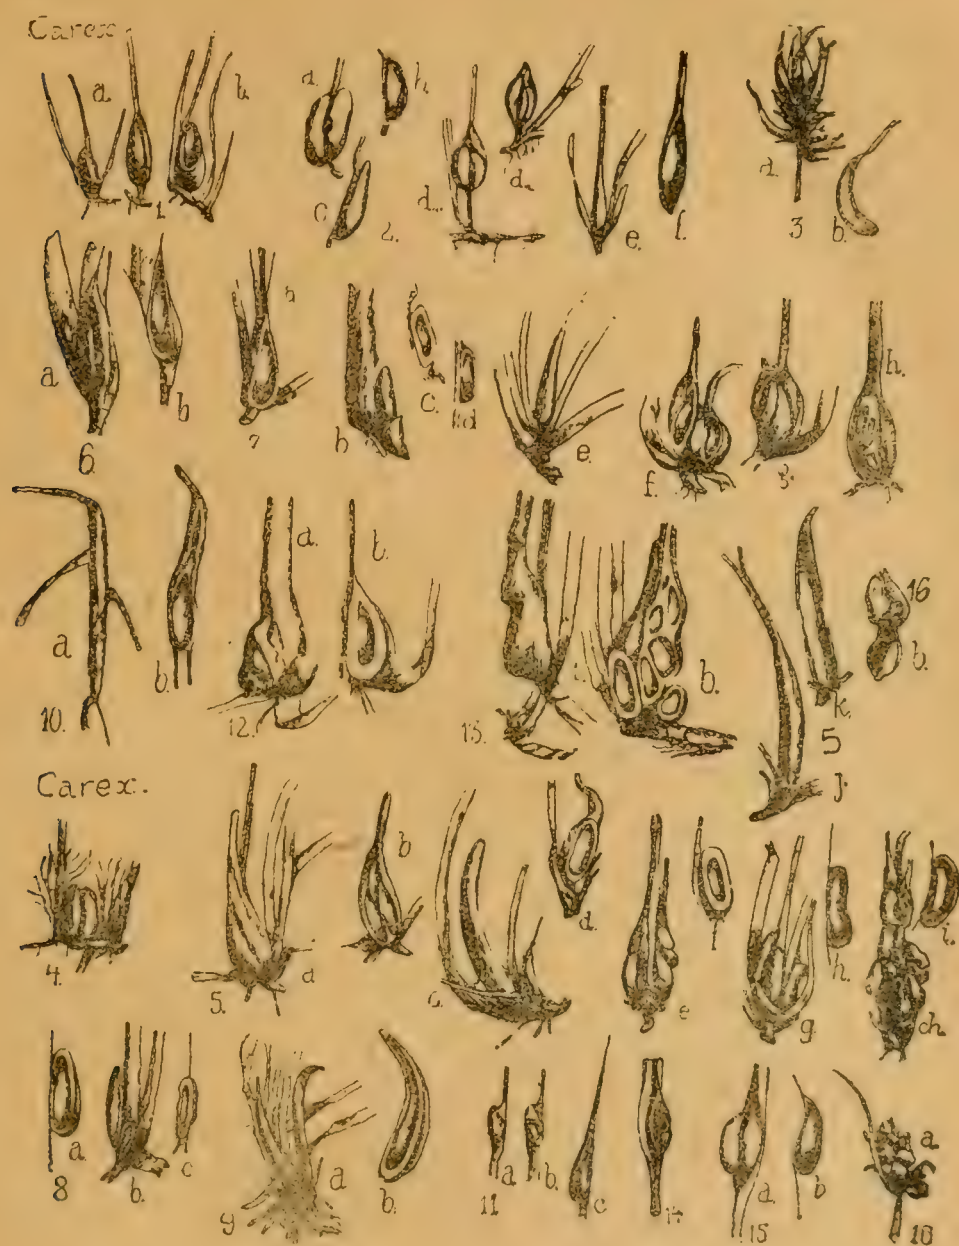 Carex.
a. 1. b.
a. h. c. 2. d. d. e. f.
a. 3 b.
a 6. b
7
b c. d e. f. g. h.
a 10. b.
a. 12. b.
13. b.
5 j. k.
16 b.
Carex.
4.
5. a b c. d. e f g. h. i. ch.
8 a. b. c
9 a b.
11 a b. c
14
a. 15 b
a. 16